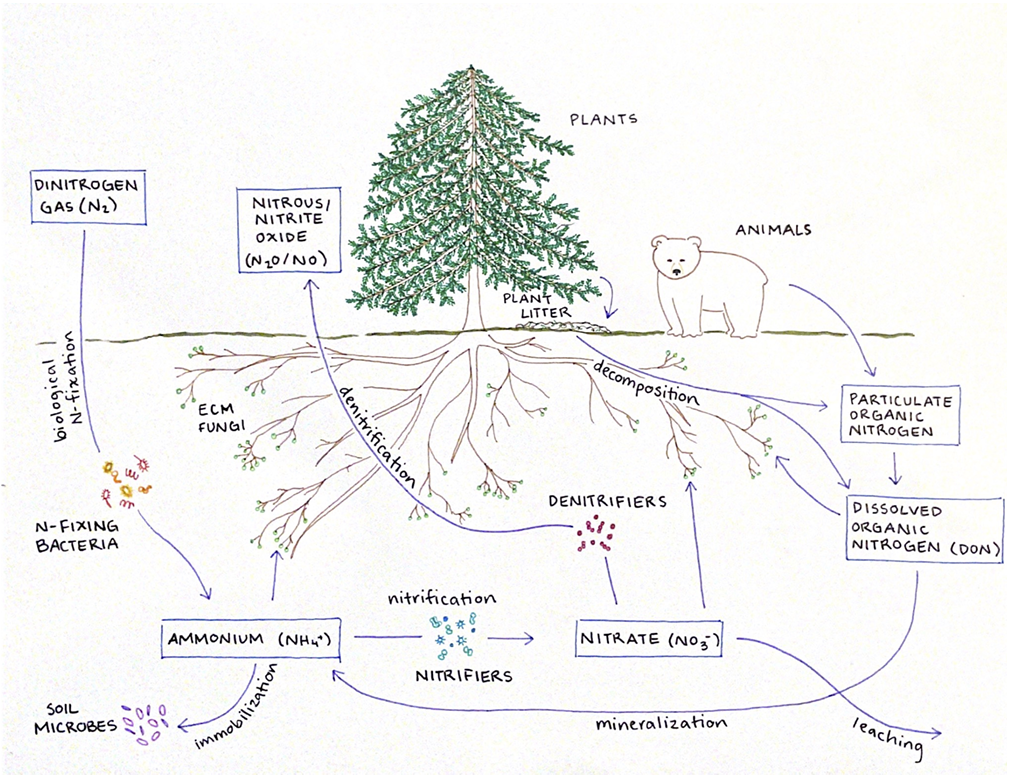 PLANTS
DINITROGEN
GAS (N₂)
NITROUS/
NITRITE
OXIDE
(N₂O/NO)
ANIMALS
PLANT
LITTER
biological
N-fixation
denitrification
decomposition
ECM
FUNGI
PARTICULATE
ORGANIC
NITROGEN
N-FIXING
BACTERIA
DENITRIFIERS
DISSOLVED
ORGANIC
NITROGEN (DON)
nitrification
AMMONIUM (NH₄⁺)
NITRIFIERS
NITRATE (NO₃⁻)
SOIL
MICROBES
immobilization
mineralization
leaching